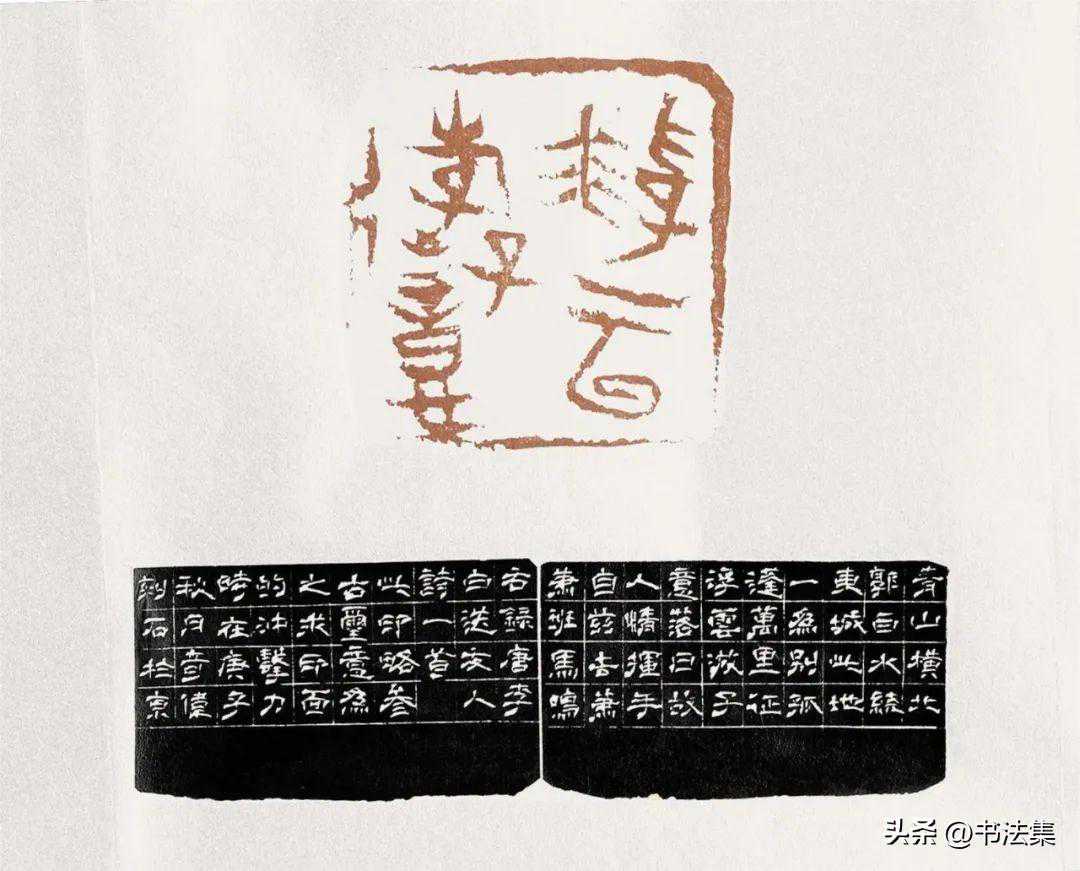 浮云
游子意
青山橫北
郭白水繞
東城此地
一為別孤
蓬萬里征
浮雲游子
意落日故
人情揮手
自茲去蕭
蕭班馬鳴
右錄唐李
白送友人
詩一首
此印略參
古璽意為
之求印面
的沖擊力
時在庚子
秋月彥偉
刻石於京
头条 @书法集